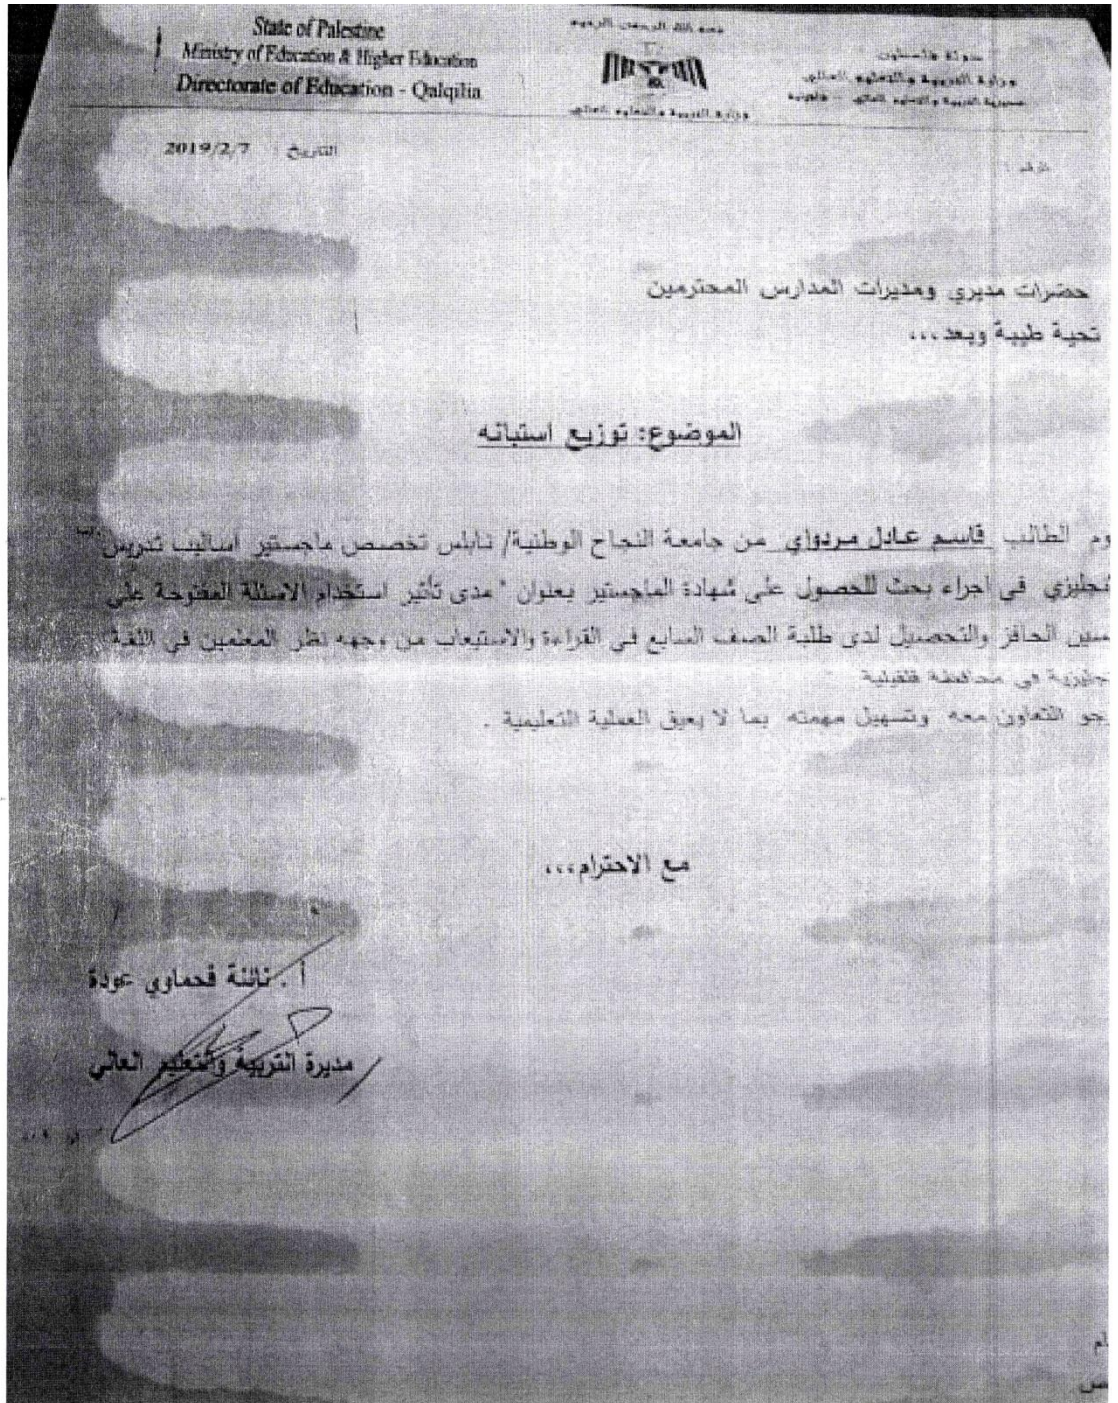 State of Palestine
Ministry of Education & Higher Education
Directorate of Education - Qalqilia
بسم الله الرحمن الرحيم
وزارة التربية والتعليم العالي
دولة فلسطين
وزارة التربية والتعليم العالي
مديرية التربية والتعليم العالي - قلقيلية
التاريخ : 2019/2/7
الرقم :
حضرات مديري ومديرات المدارس المحترمين
تحية طيبة وبعد،،،
الموضوع: توزيع استبانه
وم الطالب قاسم عادل مرداوي من جامعة النجاح الوطنية/ نابلس تخصص ماجستير اساليب تدريس
نجليزي في اجراء بحث للحصول على شهادة الماجستير بعنوان " مدى تأثير استخدام الاسئلة المفتوحة على
سين الحافز والتحصيل لدى طلبة الصف السابع في القراءة والاستيعاب من وجهه نظر المعلمين في اللغة
جليزية في محافظة قلقيلية
جو التعاون معه وتسهيل مهمته بما لا يعيق العملية التعليمية .
مع الاحترام،،،
أ . نائلة فحماوي عودة
مديرة التربية والتعليم العالي